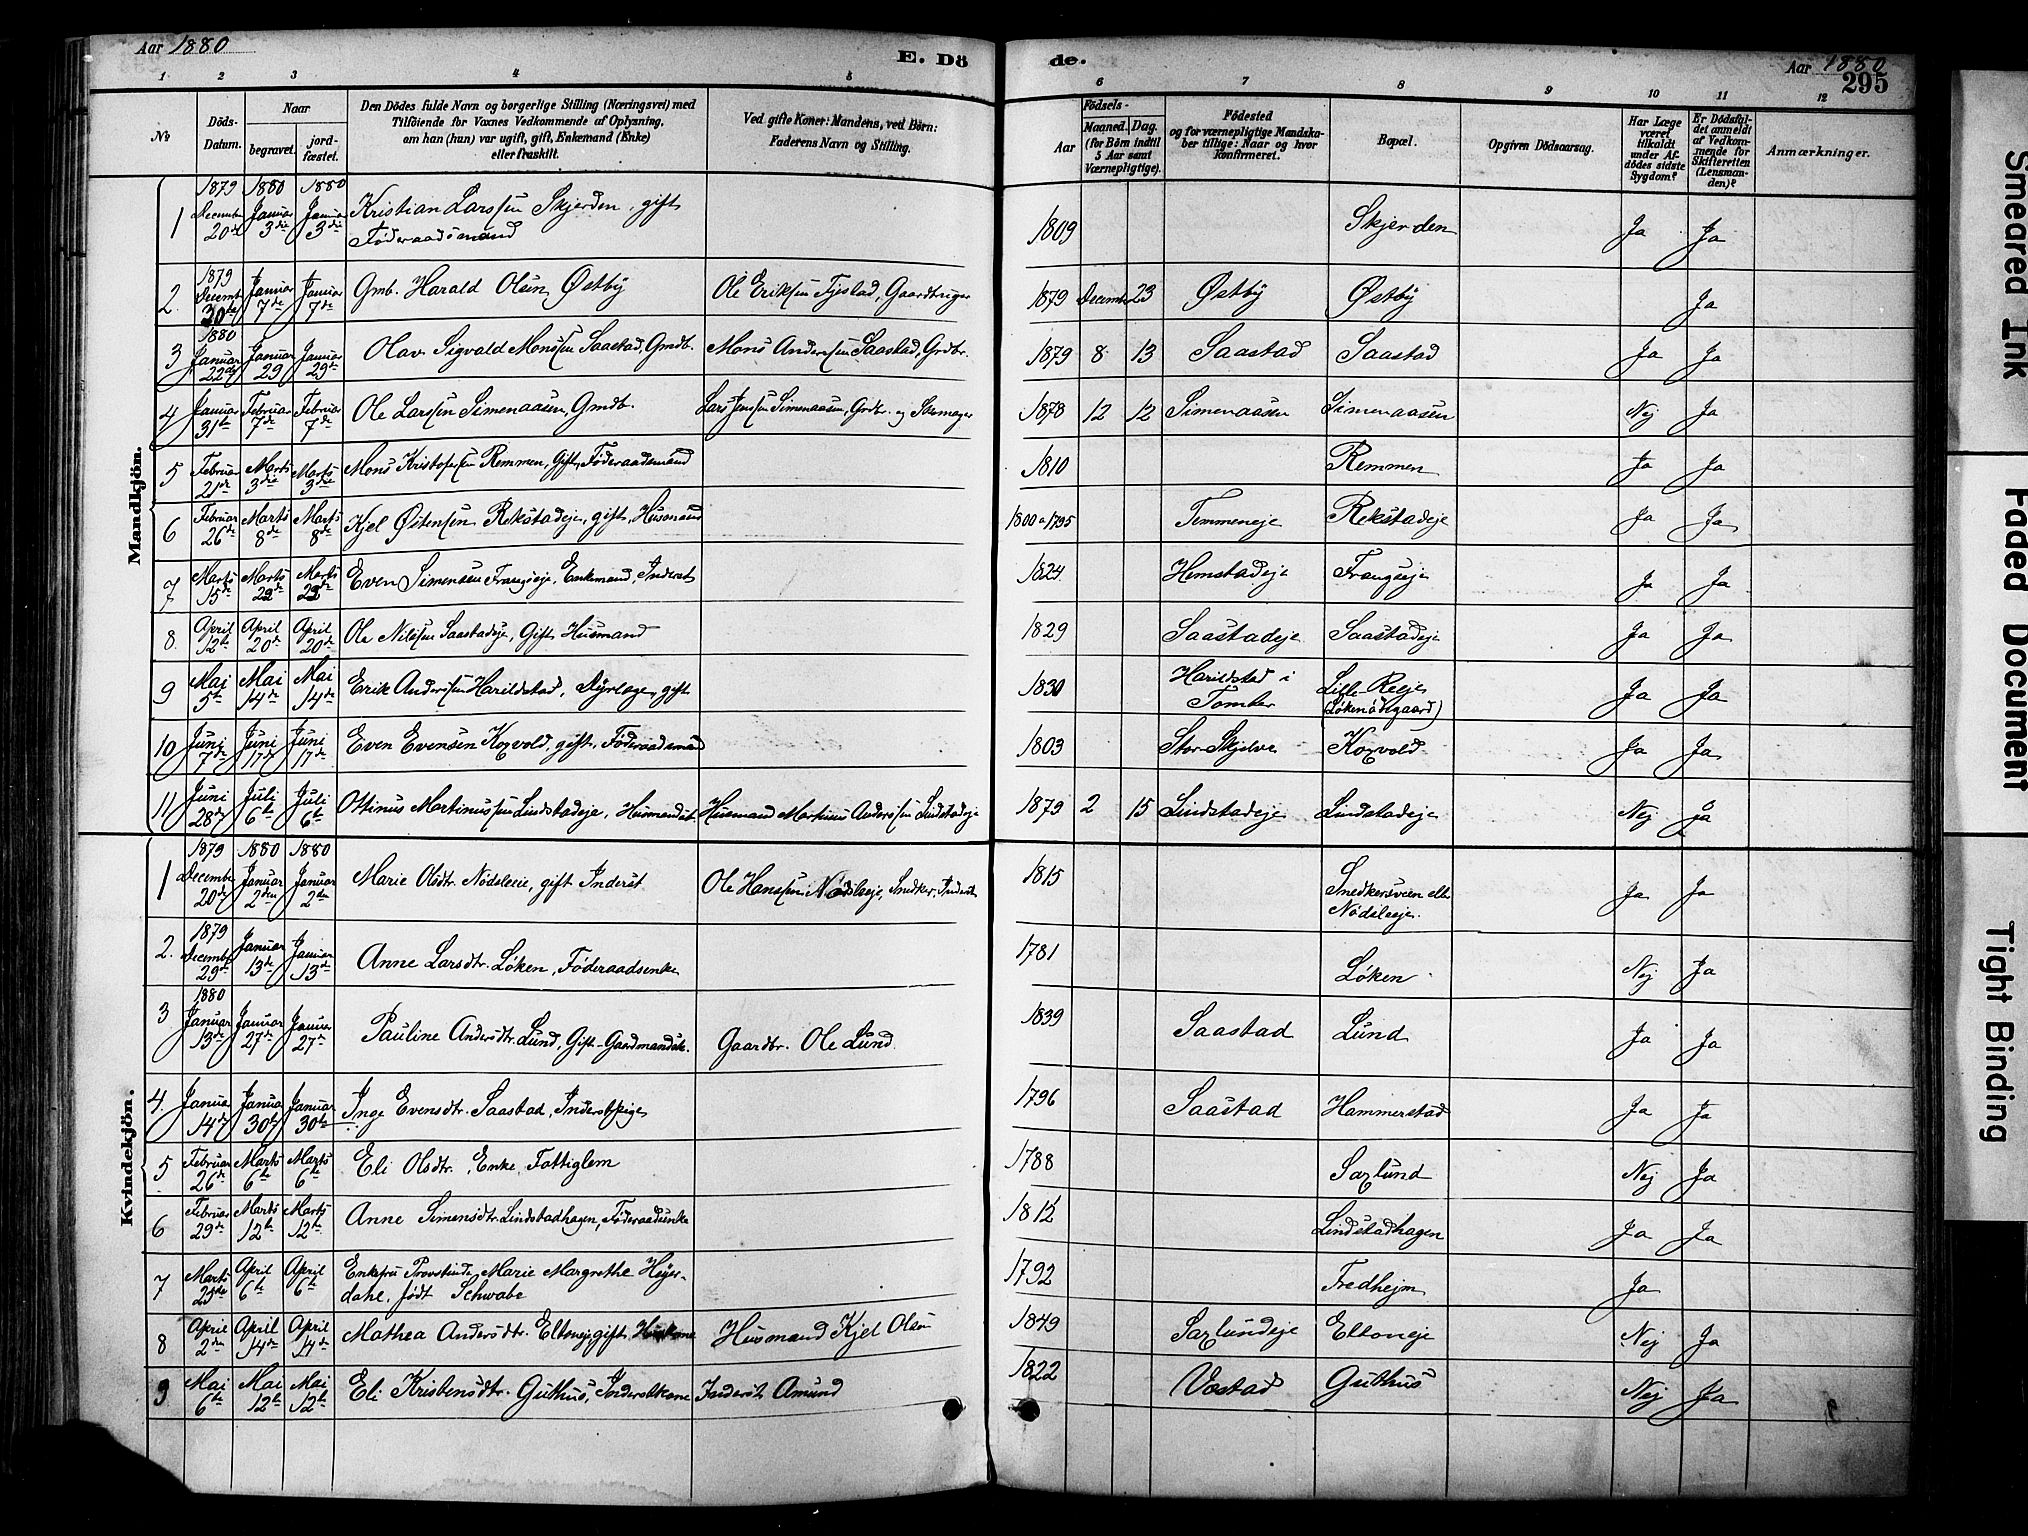 Aar 1880
E. Dö
de.
Aar 1880
295
1 2 3 4 5 6 7 8 9 10 11 12
No
Döds-Datum.
Naar
begravet.
jord-fæstet.
Den Dödes fulde Navn og borgerlige Stilling (Næringsvei) med
Tilföiende for Voxnes Vedkommende af Oplysning,
om han (hun) var ugift, gift, Enkemand (Enke)
eller fraskilt.
Ved gifte Koner: Mandens, ved Börn:
Faderens Navn og Stilling.
Födsels-
Aar
Maaned. Dag.
(for Börn indtil
5 Aar samt
Værnepligtige).
Födested
og for værnepligtige Mandska-
ber tillige: Naar og hvor
Konfirmeret.
Bopæl.
Opgiven Dödsaarsag.
Har Læge
været
tilkaldt
under Af-
dödes sidste
Sygdom?
Er Dödsfal-
det anmeldt
af Vedkom-
mende for
Skifteretten
(Lensman-
den)?
Anmærkninger.
Mandkjön.
1 1879 December 20de 1880 Januar 3die 1880 Januar 3die Kristian Larssen Skjerden, gift Føderaadsmand 1809 Skjerden Ja Ja
2 1879 Decemb 30te Januar 7de Januar 7de Gmb. Harald Olsen Østby Ole Eriksen Fjestad, Gaardbruger 1879 December 23 Østby Østby Ja
3 1880 Januar 22de Januar 29 Januar 29de Olav Sigvald Monssen Saastad, Gmdb. Mons Anderssen Saastad, Grdbr. 1879 8 13 Saastad Saastad Ja Ja
4 Januar 31te Februar 7de Februar 7de Ole Larssen Simenaasen, Gmdb. Lars Jenssen Simenaasen, Grdbr. og Skomager 1878 12 12 Simenaasen Simenaasen Nej Ja
5 Februar 21de Marts 3die Marts 3die Mons Kristofersen Remmen, Gift, Føderaadsmand 1810 Remmen Ja Ja
6 Februar 26de Marts 8de Marts 8de Kjel Østensen Rekstadeje, gift, Husmand 1800 a 1795 Temmeneje Rekstadeje Ja Ja
7 Marts 15de Marts 22de Marts 22de Even Simensen Frangseje, Enkemand, Inderst 1824 Hemstadeje Frangseje Ja Ja
8 April 12te April 20de April 20de Ole Nilssen Saastadeje, Gift Husmand 1829 Saastadeje Saastadeje Ja Ja
9 Mai 5te Mai 14de Mai 14de Erik Anderssen Harildstad, Dyrlæge, gift 1830 Harildstad i Tomter Lille-Reeje (Løkenødegaard) Ja Ja
10 Juni 7de Juni 17de Juni 17de Even Evensen Koxvold, gift, Føderaadsmand 1803 Stor-Skjelve Koxvold Ja Ja
11 Juni 28de Juli 6te Juli 6te Ottinus Martinussen Lindstadeje, Husmandsb. Husmand Martinus Anderssen Lindstadeje 1879 2 15 Lindstadeje Lindstadeje Nej Ja
Kvindekjön.
1 1879 December 20de 1880 Januar 2den 1880 Januar 2den Marie Olsdtr. Nødsleeie, gift Inderst Ole Hanssen Nødsleeje, Snedker, Inderst 1815 Snedkersveen eller Nødsleeje. Ja Ja
2. 1879 Decemb 29de Januar 13de Januar 13de Anne Larsdtr. Løken, Føderaadsenke 1781 Løken Nej Ja
3 1880 Januar 13de Januar 27de Januar 27de Pauline Andersdtr. Lund, Gift Gaardmandsk. Gaardbr. Ole Lund. 1839 Saastad Lund Ja Ja
4. Januar 14de Januar 30te Januar 30te Inge Evensdtr. Saastad, Inderstpige 1796 Saastad Hammerstad Ja Ja
5 Februar 26de Marts 6te Marts 6te Eli Olsdtr. Enke, Fattiglem 1788 Saxlund Nej Ja
6 Februar 29de Marts 12te Marts 12te Anne Simensdtr. Lindstadhagen, Føderaadsenke 1812 Lindstadhagen Ja Ja
7 Marts 23de April 6te April 6te Enkefru Provstinde Marie Margrethe Heyer- dahl, født Schwabe 1792 Fredhejm Ja
8 April 2de April 14de April 14de Mathea Andersdtr. Eltoneje, gift Huskone Husmand Kjel Olsen 1849 Saxlundeje Eltoneje Nej Ja
9 Mai 6te Mai 12te Mai 12te Eli Kristensdtr. Guthus, Inderstkone Inderst Amund 1822 Vestad Guthus Nej Ja
Smeared Ink
Faded Document
Tight Binding